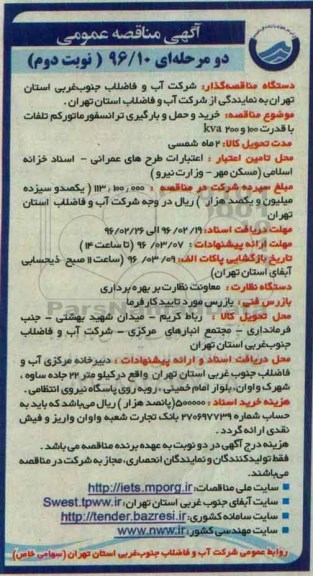 آگهی مناقصه عمومی
دو مرحله‌ای ۹۶/۱۰ ( نوبت دوم)
دستگاه مناقصه‌گذار: شرکت آب و فاضلاب جنوب‌غربی استان
تهران به نمایندگی از شرکت آب و فاضلاب استان تهران .
موضوع مناقصه: خرید و حمل و بارگیری ترانسفورماتور کم تلفات
با قدرت ۱۰۰ و ۲۰۰ kva
مدت تحویل کالا: ۲ ماه شمسی
محل تامین اعتبار : اعتبارات طرح های عمرانی - اسناد خزانه
اسلامی (مسکن مهر - وزارت نیرو )
مبلغ سپرده شرکت در مناقصه : ۱۱۳/۱۰۰/۰۰۰ ( یکصدو سیزده
میلیون و یکصد هزار ) ریال در وجه شرکت آب و فاضلاب استان
تهران
مهلت دریافت اسناد: ۹۶/۰۲/۱۹ الی ۹۶/۰۲/۲۶
مهلت ارائه پیشنهادات : ۹۶/۰۳/۰۷ ( تا ساعت ۱۴ )
تاریخ بازگشایی پاکات الف: ۹۶/۰۳/۰۹ (ساعت ۱۱ صبح ذیحسابی
آبفای استان تهران)
دستگاه نظارت : معاونت نظارت بر بهره برداری
بازرس فنی : بازرس مورد تایید کارفرما
محل تحویل کالا : رباط کریم - میدان شهید بهشتی - جنب
فرمانداری - مجتمع انبارهای مرکزی - شرکت آب و فاضلاب
جنوب‌غربی استان تهران
محل دریافت اسناد و ارائه پیشنهادات : دبیرخانه مرکزی آب و
فاضلاب جنوب غربی استان تهران واقع در کیلو متر ۲۲ جاده ساوه ،
شهرک واوان، بلوار امام خمینی ، روبه روی پاسگاه نیروی انتظامی .
هزینه خرید اسناد : ۵۰۰۰۰۰ (پانصد هزار ) ریال می‌باشد که باید به
حساب شماره ۲۷۰۶۹۷۷۳۹ بانک تجارت شعبه واوان واریز و فیش
نقدی ارائه گردد .
هزینه درج آگهی در دو نوبت به عهده برنده مناقصه می باشد .
فقط تولیدکنندگان و نمایندگان انحصاری، مجاز به شرکت در مناقصه
می‌باشند.
سایت ملی مناقصات: http://iets.mporg.ir
سایت آبفای جنوب غربی استان تهران: Swest.tpww.ir
سایت سامانه کشوری: http://tender.bazresi.ir
سایت مهندسی کشور: www.nww.ir
روابط عمومی شرکت آب و فاضلاب جنوب‌غربی استان تهران (سهامی خاص)